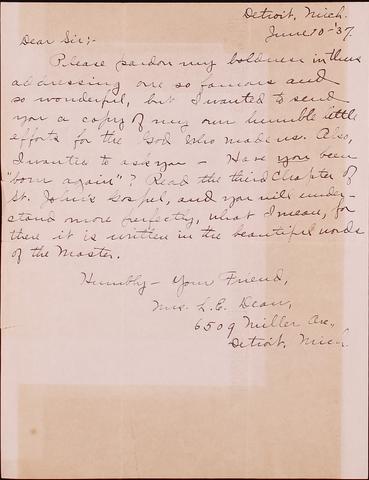 Detroit, Mich.
June 10-'37.
Dear Sir;-
Please pardon my boldness in thus
addressing one so famous and
so wonderful, but I wanted to send
you a copy of my own humble little
efforts for the God who made us. Also,
I wanted to ask you - Have you been
"born again"? Read the third Chapter of
St. John's Gospel, and you will under-
stand more perfectly, what I mean, for
there it is written in the beautiful words
of the Master.
Humbly - Your Friend,
Mrs. L. E. Dean,
6509 Miller Ave.,
Detroit, Mich.